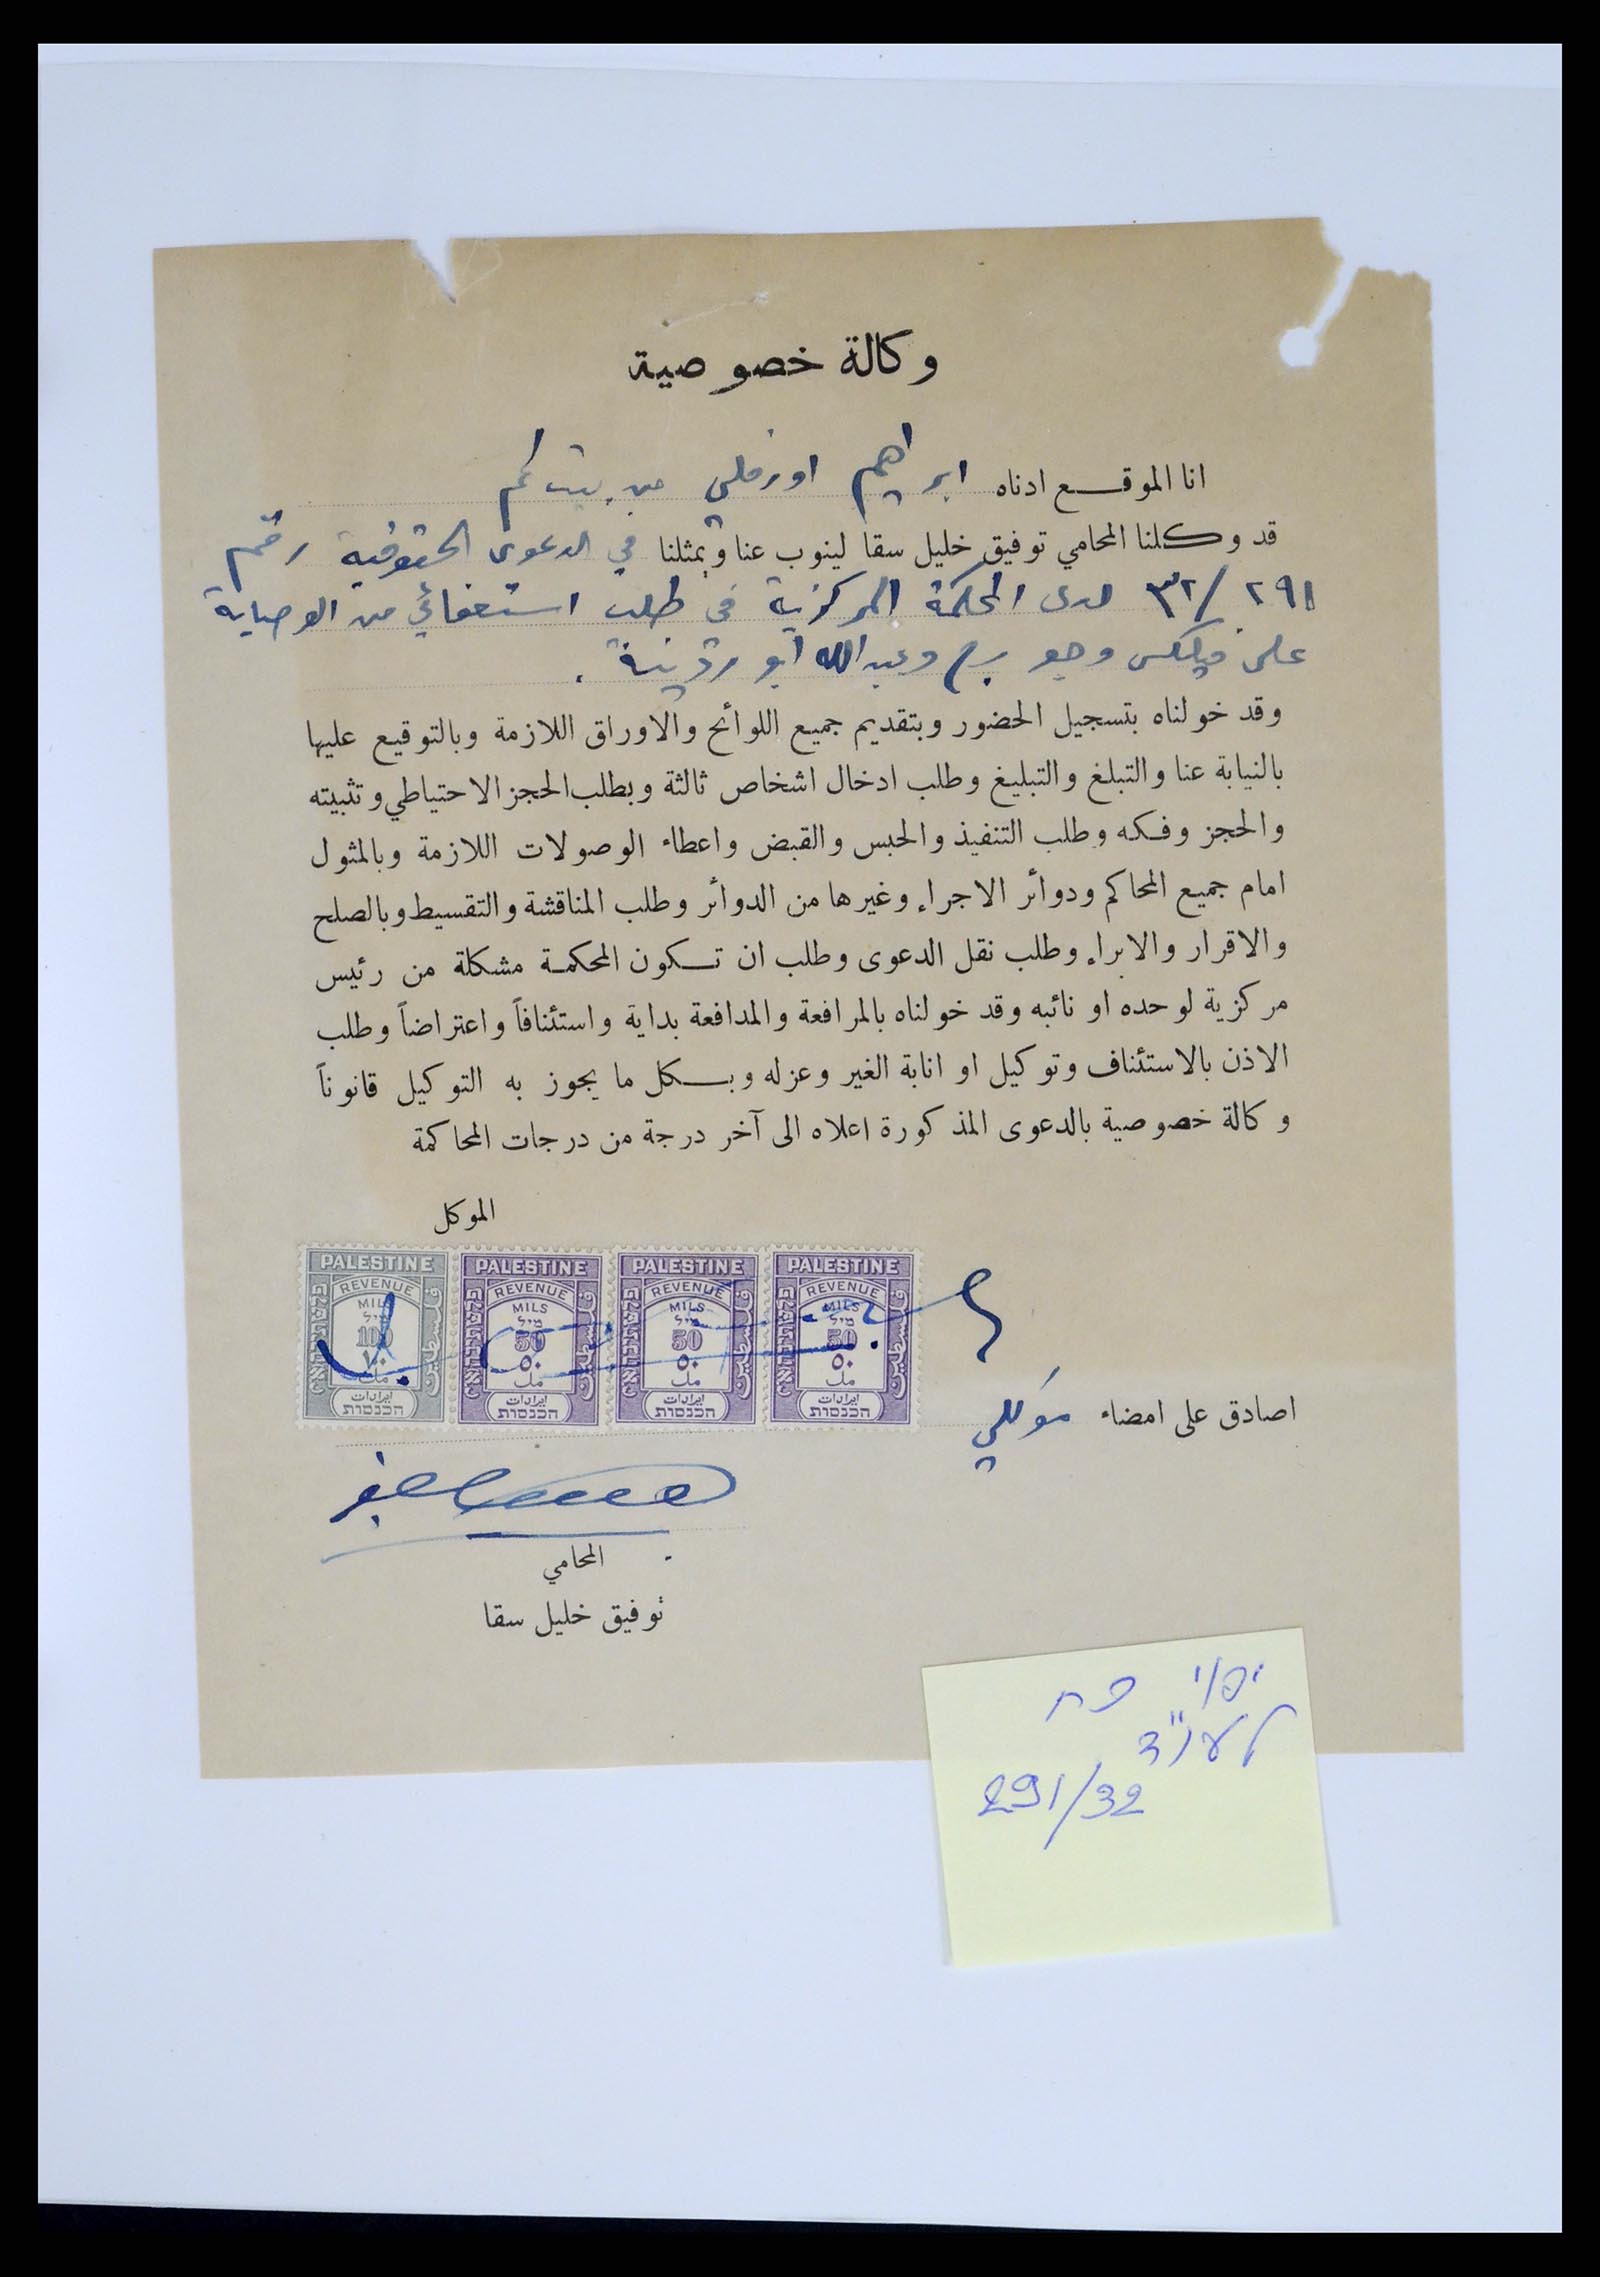 وكالة خصوصية
انا الموقع ادناه ابراهيم اورفلي من بيت لحم
قد وكلنا المحامي توفيق خليل سقا لينوب عنا وبمثلنا في الدعوى الحقوقية رقم
٣٢/٢٩١ لدى المحكمة المركزية في طلب استعفائي من الوصاية
على وعبد الله ابو
وقد خولناه بتسجيل الحضور وبتقديم جميع اللوائح والاوراق اللازمة وبالتوقيع عليها
بالنيابة عنا والتبلغ والتبليغ وطلب ادخال اشخاص ثالثة وبطلب الحجز الاحتياطي وتثبيته
والحجز وفكه وطلب التنفيذ والحبس والقبض واعطاء الوصولات اللازمة وبالمثول
امام جميع المحاكم ودوائر الاجراء وغيرها من الدوائر وطلب المناقشة والتقسيط وبالصلح
والاقرار والابراء وطلب نقل الدعوى وطلب ان تكون المحكمة مشكلة من رئيس
مركزية لوحده او نائبه وقد خولناه بالمرافعة والمدافعة بداية واستئنافاً واعتراضاً وطلب
الاذن بالاستئناف وتوكيل او انابة الغير وعزله وبكل ما يجوز به التوكيل قانوناً
وكالة خصوصية بالدعوى المذكورة اعلاه الى آخر درجة من درجات المحاكمة
الموكل
PALESTINE PALESTINE PALESTINE PALESTINE
REVENUE REVENUE REVENUE REVENUE
MILS MILS MILS MILS
מיל מיל מיל מיל
100 50 50 50
١٠٠ ٥٠ ٥٠ ٥٠
مل مل مل مل
ايرادات ايرادات ايرادات ايرادات
הכנסות הכנסות הכנסות הכנסות
اصادق على امضاء موكلي
المحامي
توفيق خليل سقا
יפוי כח
לעו"ד
291/32